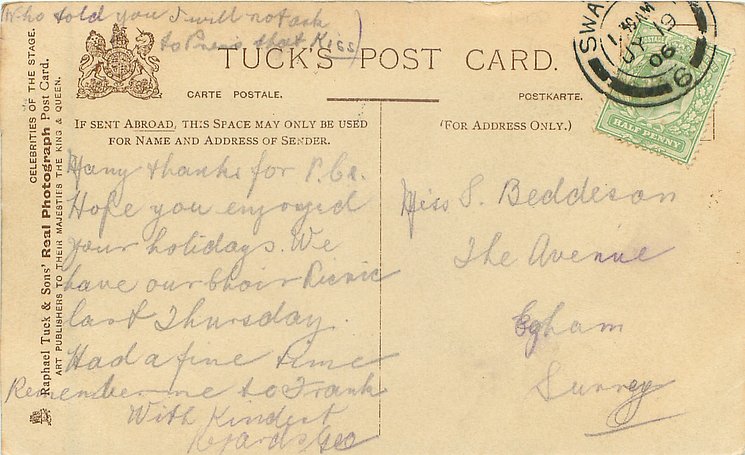 (Who told you I will not ask
to Press that Kiss)
TUCK'S POST CARD.
CARTE POSTALE.
POSTKARTE.
IF SENT ABROAD, THIS SPACE MAY ONLY BE USED
FOR NAME AND ADDRESS OF SENDER.
(FOR ADDRESS ONLY.)
CELEBRITIES OF THE STAGE.
Raphael Tuck & Sons' Real Photograph Post Card.
ART PUBLISHERS TO THEIR MAJESTIES THE KING & QUEEN.
Many thanks for P.Cs.
Hope you enjoyed
your holidays. We
have our Choir Picnic
last Thursday.
Had a fine time
Remember me to Frank
With Kindest
Regards Geo
Miss S. Beddeson
The Avenue
Egham
Surrey
SWA
JY 19
06
HALF PENNY